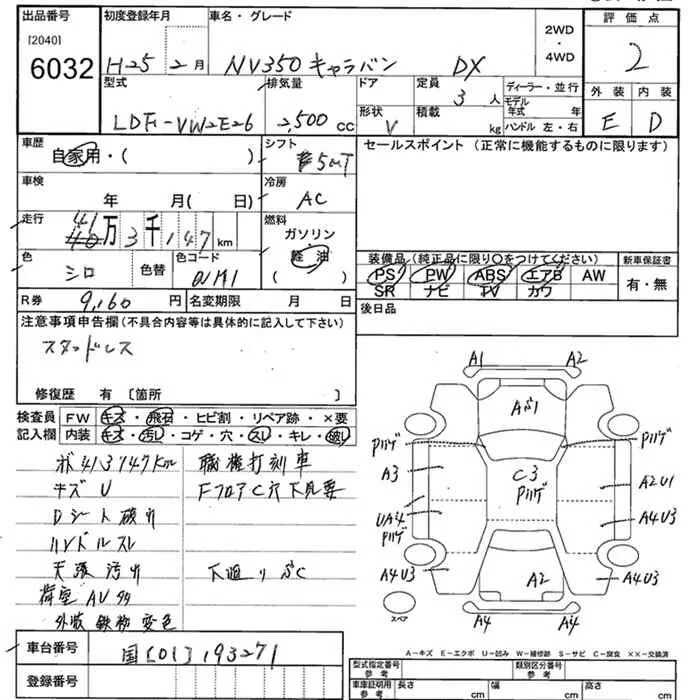 出品番号
[2040]
6032
初度登録年月
H25 2月
車名・グレード
NV350 キャラバン DX
2WD
・
4WD
評価点
2
外装 内装
E D
型式
LDF-VW2E26
排気量
2,500 cc
ドア
形状
V
定員
3 人
積載
kg
ディーラー・並行
モデル年式 年
ハンドル 左・右
車歴
自家用・( )
シフト
5MT
車検
年 月( 日)
冷房
AC
走行
41万3千147 km
燃料
ガソリン
軽油
( )
色
シロ
色替
色コード
R券 9,160 円 名変期限 月 日
セールスポイント (正常に機能するものに限ります)
装備品 (純正品に限り○をつけてください)
PS PW ABS エアB AW
SR ナビ TV カワ
新車保証書
有・無
後日品
注意事項申告欄(不具合内容等は具体的に記入して下さい)
スタッドレス
修復歴 有 [箇所 ]
検査員記入欄
FW キズ・飛石・ヒビ割・リペア跡・×要
内装 キズ・汚レ・コゲ・穴・スレ・キレ・破レ
413147km
キズ U
Dシート破れ
ハンドルスレ
天張汚れ
荷室 AU
外装 変色
職権打刻車
FフロアC穴 下見要
下廻り
A1 A2
Aぶ1
Pハゲ Pハゲ
A3
C3
Pハゲ
A2U1
UA4
Pハゲ
A4U3
A4U3
A2
A4U3
A4 A4
スペア
A-キズ E-エクボ U-凹み W-補修跡 S-サビ C-腐食 ××-交換済
車台番号
国[01]193271
登録番号
型式指定番号
参考
類別区分番号
参考
車庫証明用
参考
長さ cm
幅 cm
高さ cm